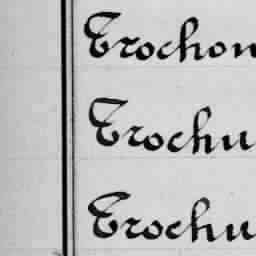 Trochon
Trochu
Trochu